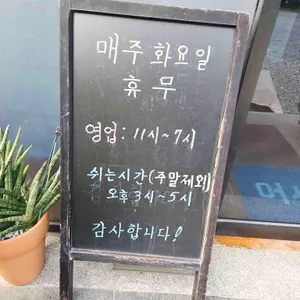 매주 화요일
휴무
영업: 11시~7시
쉬는시간(주말제외)
오후 3시~5시
감사합니다!